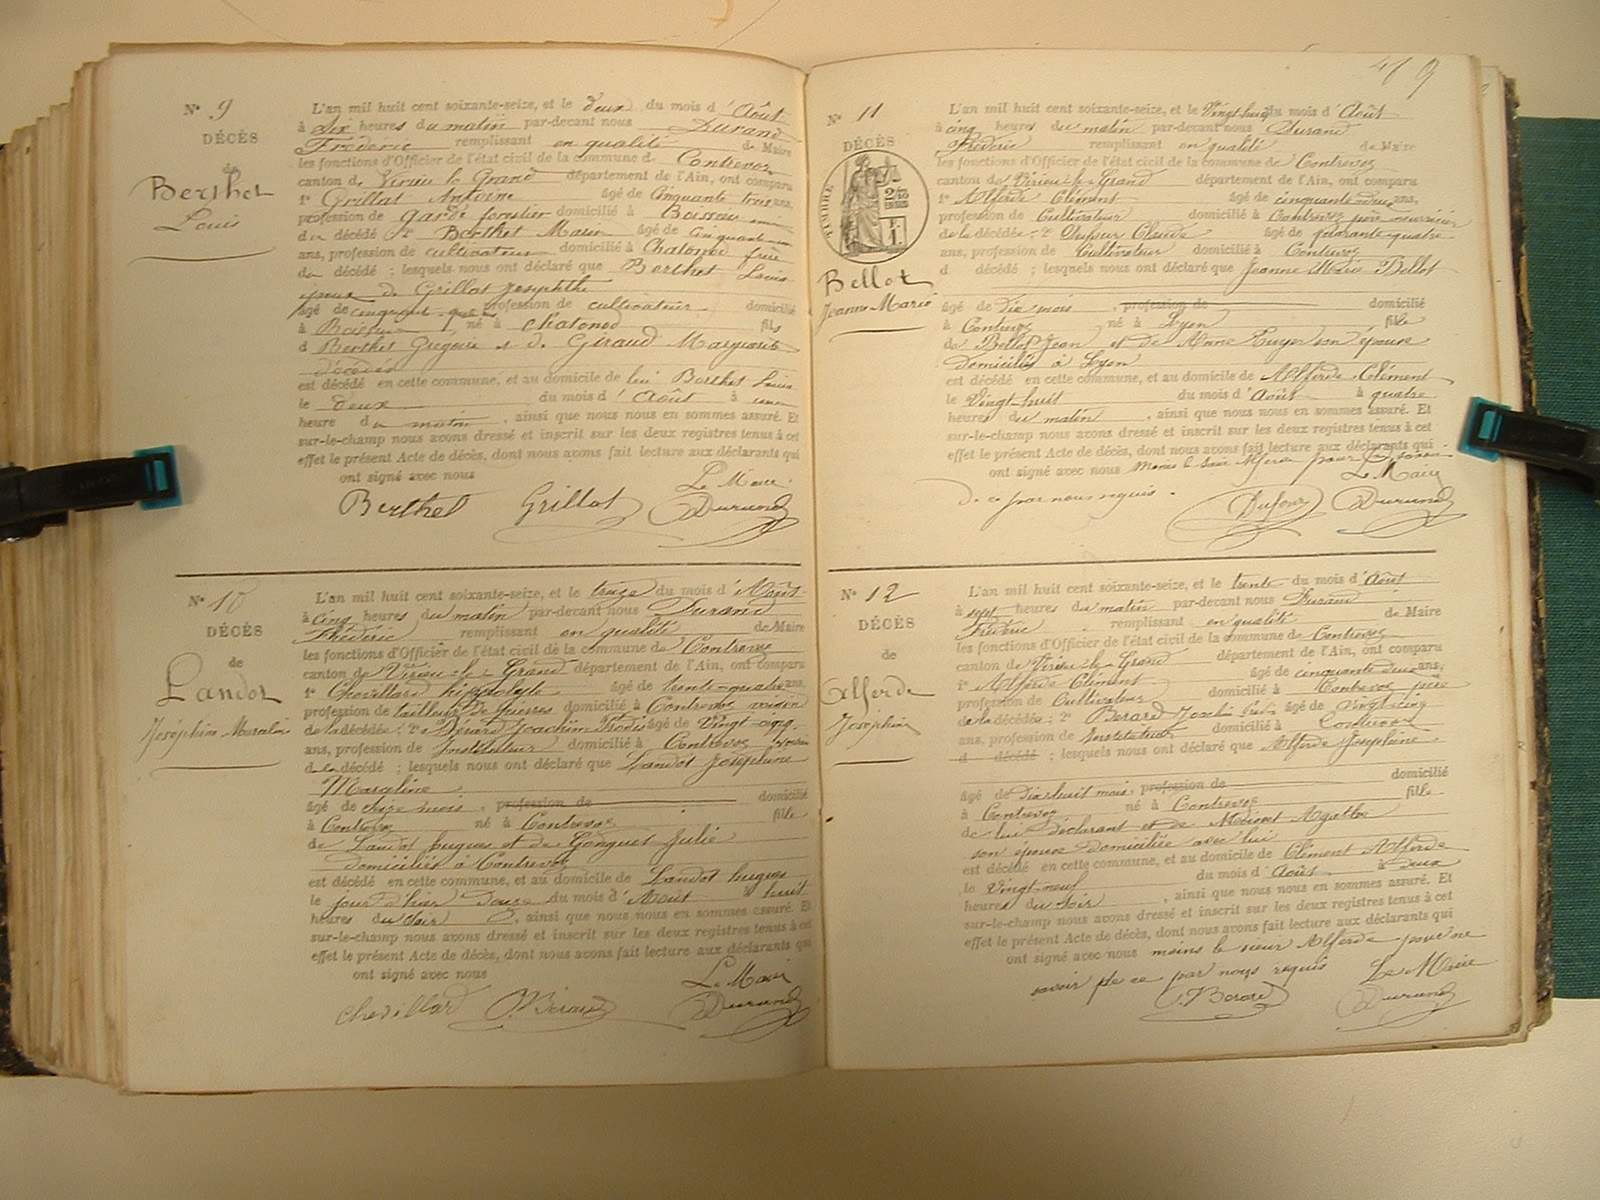 N° 9
DÉCÈS
de
Berthet
Louis
L'an mil huit cent soixante-seize, et le deux du mois d'Août
à six heures du matin par-devant nous Durand
Fréderic remplissant en qualité de Maire
les fonctions d'Officier de l'état civil de la commune de Contrevoz
canton de Virieu le Grand département de l'Ain, ont comparu
1° Grillot Antoine âgé de Cinquante trois ans,
profession de garde forestier domicilié à Boissieu
du décédé 2° Berthet Marin âgé de cinquante
ans, profession de cultivateur domicilié à Chatonod frère
du décédé ; lesquels nous ont déclaré que Berthet Louis
époux de Grillot Josephthe
âgé de cinquante profession de cultivateur domicilié
à Boissieu né à Chatonod fils
d Berthet Gregoire et de Giraud Marguerite
décédés
est décédé en cette commune, et au domicile de lui Berthet Louis
le deux du mois d'Août à une
heure du matin, ainsi que nous nous en sommes assuré. Et
sur-le-champ nous avons dressé et inscrit sur les deux registres tenus à cet
effet le présent Acte de décès, dont nous avons fait lecture aux déclarants qui
ont signé avec nous
Le Maire
Berthet Grillot Durand
N° 10
DÉCÈS
de
Landot
Joséphine Marceline
L'an mil huit cent soixante-seize, et le treize du mois d'Août
à cinq heures du matin par-devant nous Durand
Fréderic remplissant en qualité de Maire
les fonctions d'Officier de l'état civil de la commune de Contrevoz
canton de Virieu-le-Grand département de l'Ain, ont comparu
1° Chevillard hippolyte âgé de trente-quatre ans,
profession de tailleur de pierres domicilié à Contrevoz voisin
de la décédée; 2° Bérard Joachim âgé de Vingt-cinq
ans, profession de Instituteur domicilié à Contrevoz voisin
de la décédé ; lesquels nous ont déclaré que Landot Joséphine
Marceline
âgé de seize mois, profession de domicilié
à Contrevoz né à Contrevoz fille
de Landot hugues et de Gonguet Julie
domiciliés à Contrevoz
est décédé en cette commune, et au domicile de Landot hugues
le jour d'hier Douze du mois d'Août à huit
heures du soir, ainsi que nous nous en sommes assuré. Et
sur-le-champ nous avons dressé et inscrit sur les deux registres tenus à cet
effet le présent Acte de décès, dont nous avons fait lecture aux déclarants qui
ont signé avec nous
Le Maire
Chevillard Bérard Durand
9
N° 11
DÉCÈS
TIMBRE
2/10
F. 1.
Bellot
Jeanne Marie
L'an mil huit cent soixante-seize, et le Vingt huit du mois d'Août
à cinq heures du matin par-devant nous Durand
Fréderic remplissant en qualité de Maire
les fonctions d'Officier de l'état civil de la commune de Contrevoz
canton de Virieu-le-Grand département de l'Ain, ont comparu
1° Alferde Clément âgé de cinquante deux ans,
profession de Cultivateur domicilié à Contrevoz père nourricier
de la décédée ; 2° Dufour Claude âgé de quarante-quatre
ans, profession de Cultivateur domicilié à Contrevoz
d décédé ; lesquels nous ont déclaré que Jeanne Marie Bellot
âgé de dix mois, profession de domicilié
à Contrevoz né à Lyon fille
de Bellot Jean et de son épouse
domiciliés à Lyon
est décédé en cette commune, et au domicile de Alferde Clément
le Vingt-huit du mois d'Août à quatre
heures du matin, ainsi que nous nous en sommes assuré. Et
sur-le-champ nous avons dressé et inscrit sur les deux registres tenus à cet
effet le présent Acte de décès, dont nous avons fait lecture aux déclarants qui
ont signé avec nous moins le sieur Alferde pour ne savoir
de ce par nous requis. Le Maire
Dufour Durand
N° 12
DÉCÈS
de
Alferde
Joséphine
L'an mil huit cent soixante-seize, et le trente du mois d'Août
à sept heures du matin par-devant nous Durand
Fréderic remplissant en qualité de Maire
les fonctions d'Officier de l'état civil de la commune de Contrevoz
canton de Virieu-le-Grand département de l'Ain, ont comparu
1° Alferde Clément âgé de cinquante deux ans,
profession de Cultivateur domicilié à Contrevoz père
de la décédée ; 2° Berard âgé de Vingt-cinq
ans, profession de Instituteur domicilié à Contrevoz
d décédé ; lesquels nous ont déclaré que Alferde Joséphine
âgé de dix-huit mois profession de domicilié
à Contrevoz né à Contrevoz fille
de lui déclarant et de Agathe
son épouse domiciliée avec lui
est décédé en cette commune, et au domicile de Clément Alferde
le Vingt-neuf du mois d'Août à deux
heures du soir, ainsi que nous nous en sommes assuré. Et
sur-le-champ nous avons dressé et inscrit sur les deux registres tenus à cet
effet le présent Acte de décès, dont nous avons fait lecture aux déclarants qui
ont signé avec nous moins le sieur Alferde pour ne
savoir de ce par nous requis Le Maire
Berard Durand